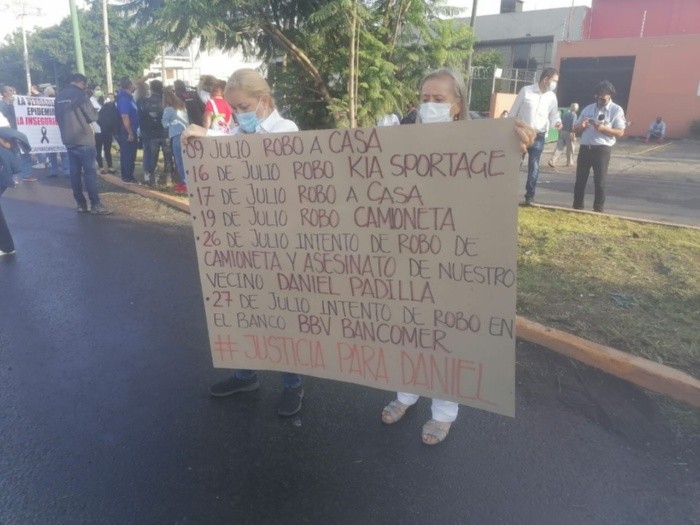 LA VERDADERA
EPIDEMIA
ES LA INSEGURIDAD
·09 JULIO ROBO A CASA
·16 DE JULIO ROBO KIA SPORTAGE
·17 DE JULIO ROBO A CASA
·19 DE JULIO ROBO CAMIONETA
·26 DE JULIO INTENTO DE ROBO DE
CAMIONETA Y ASESINATO DE NUESTRO
VECINO DANIEL PADILLA
·27 DE JULIO INTENTO DE ROBO EN
EL BANCO BBV BANCOMER
#JUSTICIA PARA DANIEL